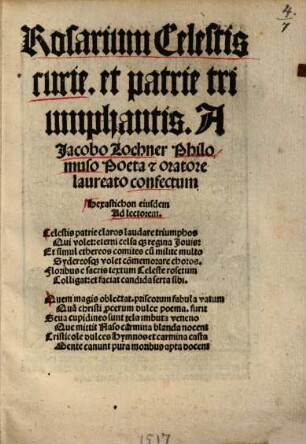 4.
7
Rosarium Celestis
curie. et patrie tri
umphantis. A
Jacobo Locher Philo
muso Poeta & oratore
laureato confectum
Hexastichon eiusdem
Ad lectorem.
Celestis patrie claros laudare triumphos
Qui volet: eterni celsa regina Jouis:
Et simul ethereos comites cū milite multo
Sydereosq; volet cōmemorare choros.
Floribus e sacris textum Celeste rosetum
Colligat: et faciat candida serta sibi.
Quem magis oblectat priscorum fabula vatum
Quā christi procerum dulce poema. furit
Seua cupidineo sunt illa imbuta veneno
Que mittit Naso carmina blanda nocent
Cristicole dulces Hymnos et carmina casta
Mente canunt pura moribus apta docent
1517